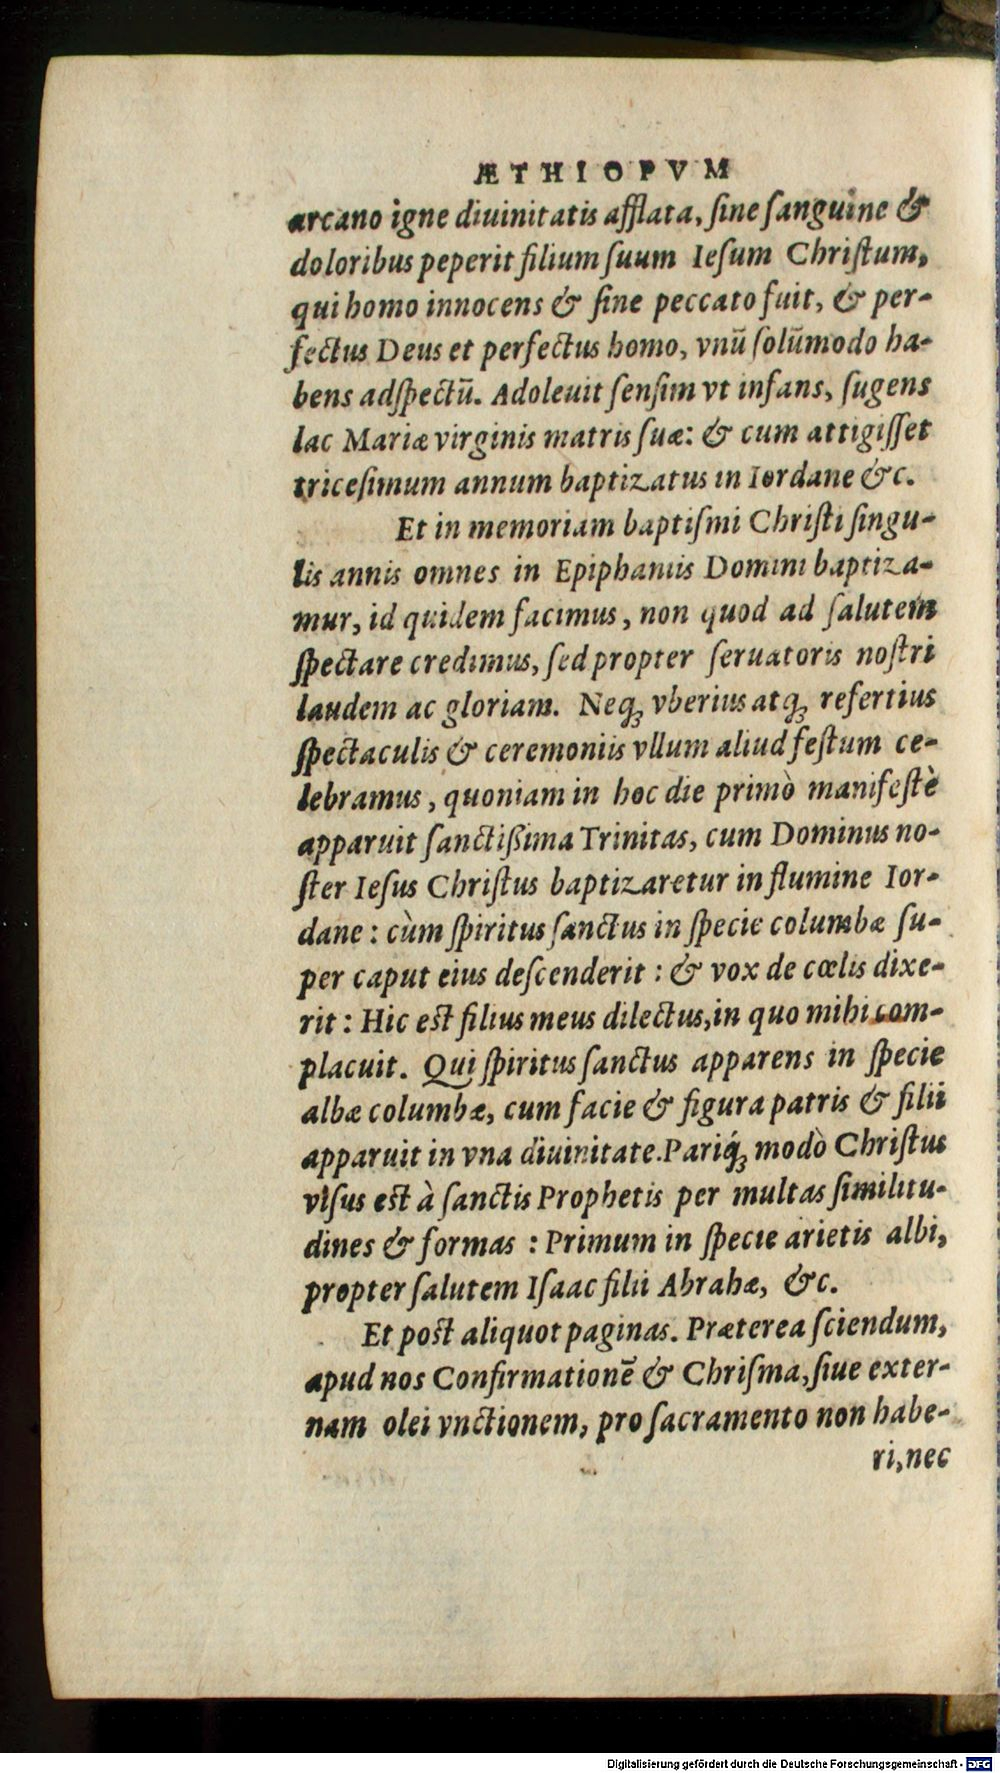 ÆTHIOPVM
arcano igne diuinitatis afflata, ſine ſanguine &
doloribus peperit filium ſuum Ieſum Chriſtum,
qui homo innocens & ſine peccato fuit, & per-
fectus Deus et perfectus homo, vnū ſolūmodo ha-
bens adſpectū. Adoleuit ſenſim vt infans, ſugens
lac Mariæ virginis matris ſuæ: & cum attigiſſet
triceſimum annum baptizatus in Iordane &c.
Et in memoriam baptiſmi Chriſti ſingu-
lis annis omnes in Epiphaniis Domini baptiza-
mur, id quidem facimus, non quod ad ſalutem
ſpectare credimus, ſed propter ſeruatoris noſtri
laudem ac gloriam. Neqꝫ vberius atqꝫ refertius
ſpectaculis & ceremoniis vllum aliud feſtum ce-
lebramus, quoniam in hoc die primò manifeſtè
apparuit ſanctißima Trinitas, cum Dominus no-
ſter Ieſus Chriſtus baptizaretur in flumine Ior-
dane : cùm ſpiritus ſanctus in ſpecie columbæ ſu-
per caput eius deſcenderit : & vox de cœlis dixe-
rit : Hic eſt filius meus dilectus,in quo mihi com-
placuit. Qui ſpiritus ſanctus apparens in ſpecie
albæ columbæ, cum facie & figura patris & filii
apparuit in vna diuinitate.Pariq́ꝫ modò Chriſtus
viſus eſt à ſanctis Prophetis per multas ſimilitu-
dines & formas : Primum in ſpecie arietis albi,
propter ſalutem Iſaac filii Abrahæ, &c.
Et poſt aliquot paginas. Præterea ſciendum,
apud nos Confirmationē & Chriſma,ſiue exter-
nam olei vnctionem, pro ſacramento non habe-
ri,nec
Digitalisierung gefördert durch die Deutsche Forschungsgemeinschaft - DFG